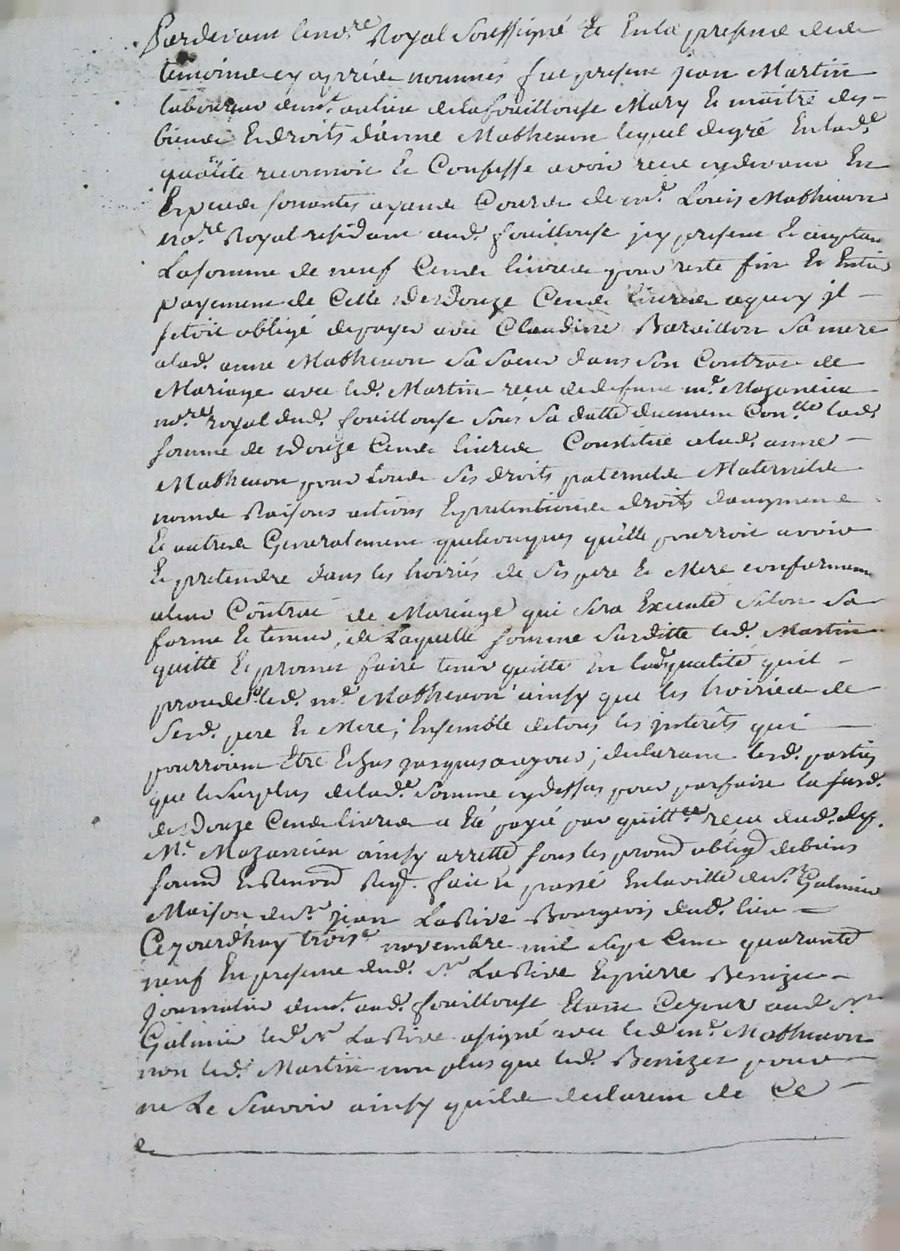 Pardevant le no.re Royal Soussigné & En la presence des
temoins cy aprés nommés fut present jean Martin
laboureur dem.t au lieu de la fouillouse Mary Et maitre des
biens Et droits d'anne Mathevon lequel de gré En lad.e
qualité reconnoit Et Confesse avoir reçu cy devant En
Especes sonantes ayant Cours de m.e Louis Mathevon
no.re Royal residant aud. fouillouse icy present Et acceptant
La somme de neuf Cent livres pour reste fin Et Entier
payement de Celle de Douze Cent livres a quoy il
s'etoit obligé de payer avec Claudine Baraillon sa mere
a lad. anne Mathevon Sa Soeur dans son Contract de
Mariage avec led. Martin reçu de defunt m.e Mazancieu
no.re royal dud. fouillouse sous Sa datte duement Con.llé lad.
somme de Douze Cent livres Constitué a lad. anne
Mathevon pour tous Ses droits paternels Maternels
noms Raisons actions Et pretentions droits d'augment
Et autres Generalement quelconques qu'elle pourroit avoir
Et pretendre dans les hoiries de Ses pere Et Mere conformement
a leur Contrac de Mariage qui sera Executé Selon Sa
forme Et teneur, de Laquelle somme Surditte led. Martin
quitte Et promet faire tenir quitte En lad. qualité qu'il
procede led. m.e Mathevon ainsy que les hoiries de
Sesd. pere Et Mere; Ensemble de tous les interêts qui
pourroient Etre Echus jusques aujour; declarant lesd. parties
que le Surplus de lad.e Somme cy dessus pour parfaire la susd.
de Douze Cent livres a Eté payé par quitt.ce reçu dud.
M.e Mazancieu ainsy arretté sous les prom. oblig. de biens
soum. Et Renon. Req. fait Et passé En la ville de S.t Galmier
Maison de S.r jean LaRive Bourgeois dud. lieu
Cejourd'huy trois.e novembre mil Sept Cent quarante
neuf En presence dud. S.r LaRive Et pierre Benizet
journalier dem.t aud. fouillouse Etant Cejour aud. S.t
Galmier led. S.r LaRive a signé avec led. m.e Mathevon
non led. Martin non plus que led. Benizet pour
ne Le Scavoir ainsy qu'ils declarent de Ce